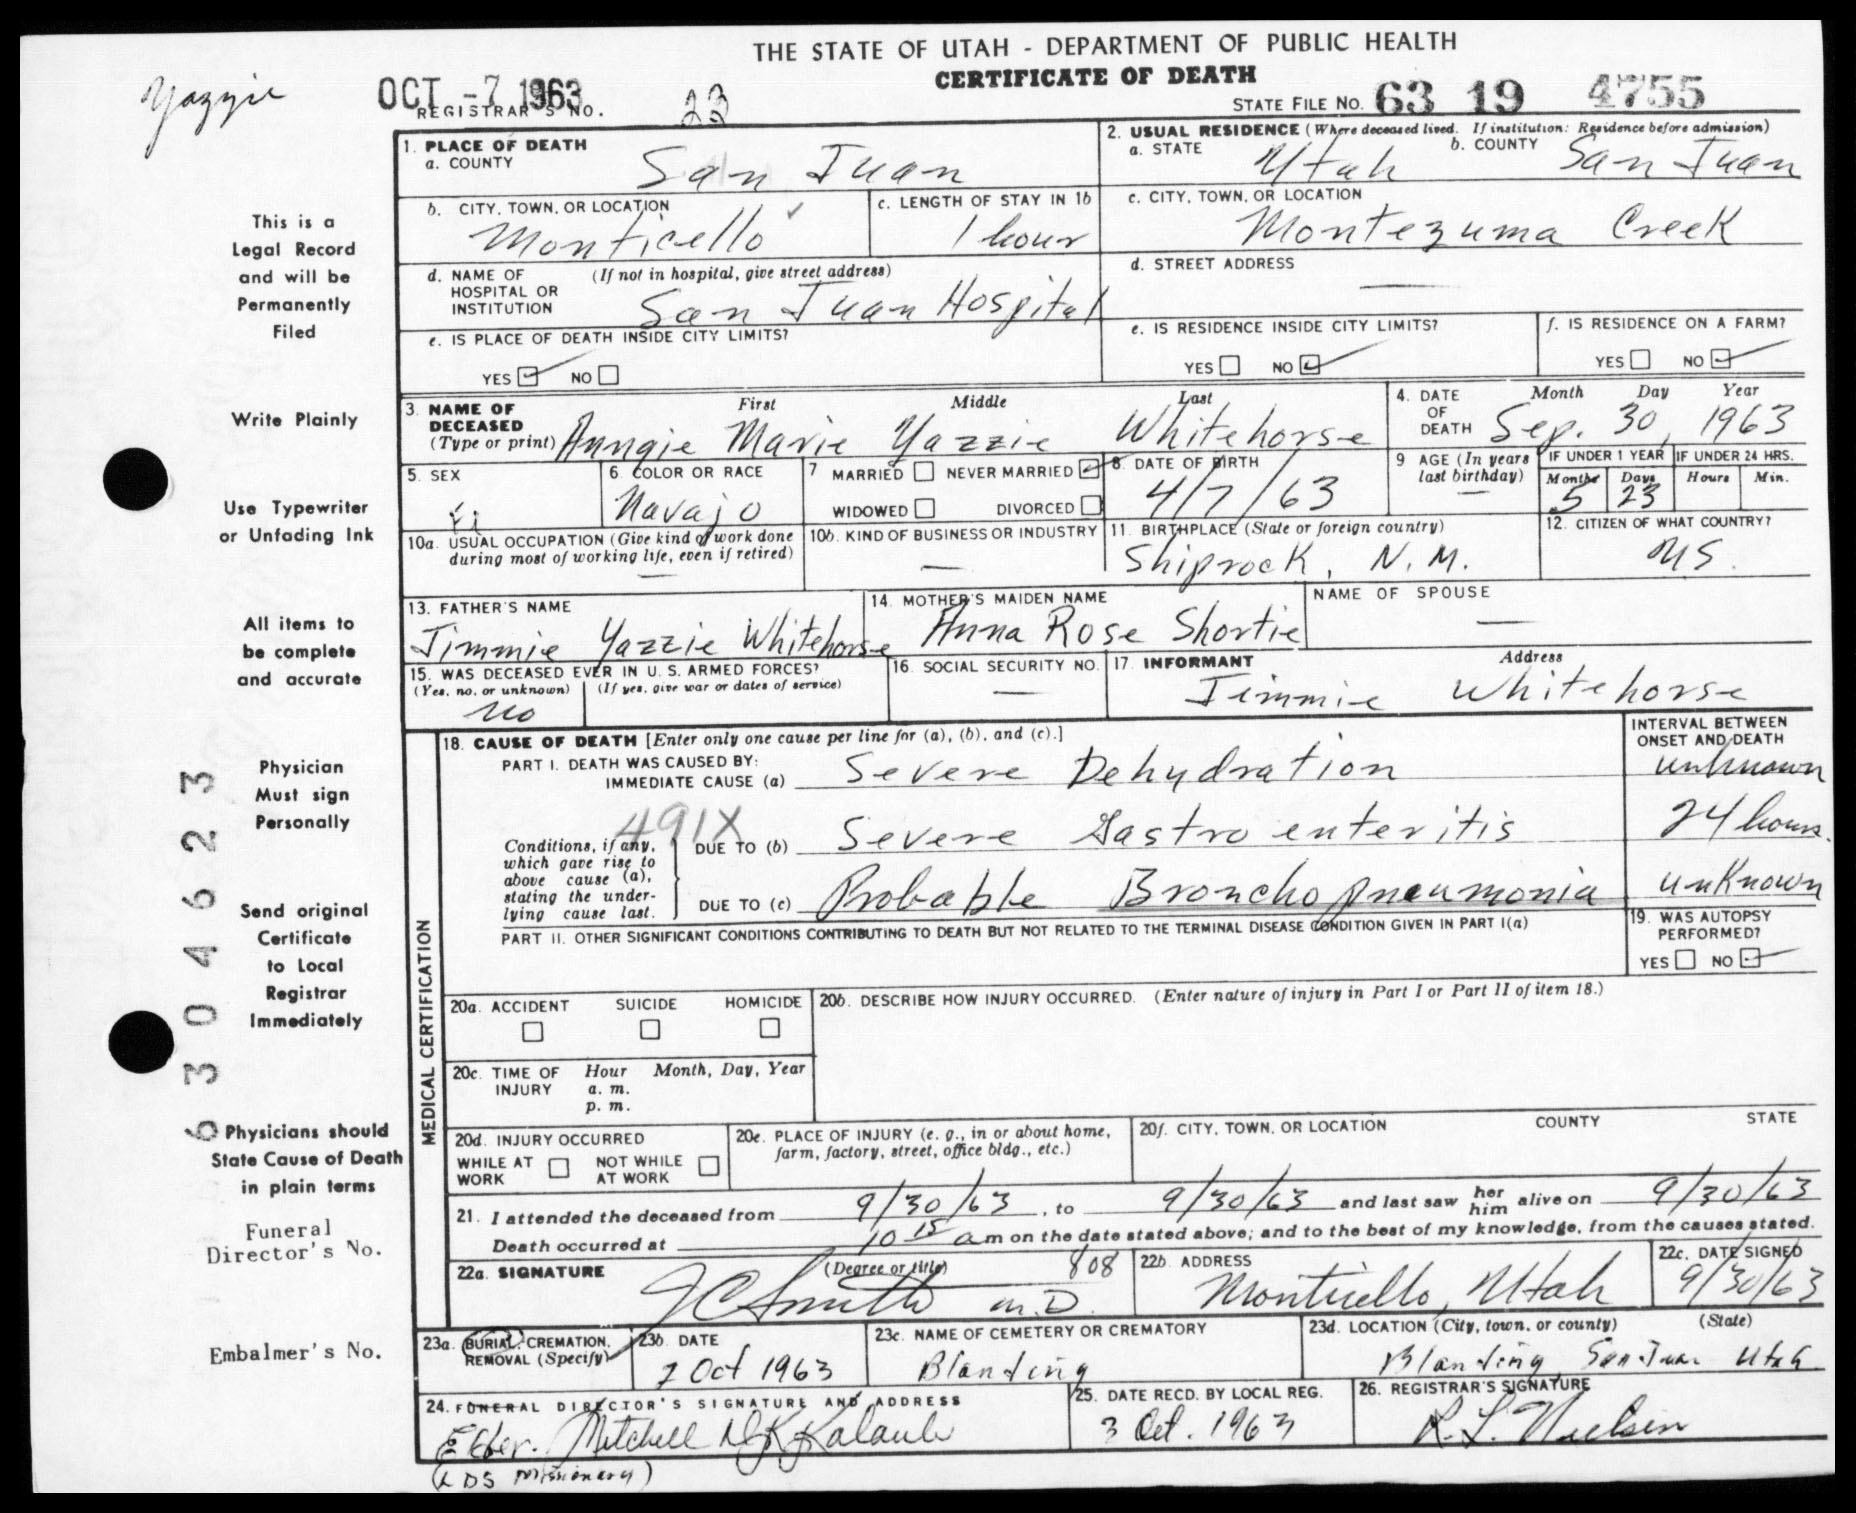 THE STATE OF UTAH - DEPARTMENT OF PUBLIC HEALTH
CERTIFICATE OF DEATH
Yazzie
OCT -7 1963
REGISTRAR'S NO. 23
STATE FILE NO. 63 19 4755
1. PLACE OF DEATH
a. COUNTY San Juan
2. USUAL RESIDENCE (Where deceased lived. If institution: Residence before admission)
a. STATE Utah b. COUNTY San Juan
b. CITY, TOWN, OR LOCATION Monticello
c. LENGTH OF STAY IN 1b 1 hour
c. CITY, TOWN, OR LOCATION Montezuma Creek
d. NAME OF HOSPITAL OR INSTITUTION (If not in hospital, give street address) San Juan Hospital
d. STREET ADDRESS —
e. IS PLACE OF DEATH INSIDE CITY LIMITS?
YES NO
e. IS RESIDENCE INSIDE CITY LIMITS?
YES NO
f. IS RESIDENCE ON A FARM?
YES NO
3. NAME OF DECEASED (Type or print) First Middle Last
Anngie Marie Yazzie Whitehorse
4. DATE OF DEATH Month Day Year
Sep. 30, 1963
5. SEX
6. COLOR OR RACE Navajo
7 MARRIED NEVER MARRIED
WIDOWED DIVORCED
8. DATE OF BIRTH 4/7/63
9 AGE (In years last birthday) —
IF UNDER 1 YEAR Months 5 Days 23
IF UNDER 24 HRS. Hours Min.
10a. USUAL OCCUPATION (Give kind of work done during most of working life, even if retired) —
10b. KIND OF BUSINESS OR INDUSTRY —
11. BIRTHPLACE (State or foreign country) Shiprock, N.M.
12. CITIZEN OF WHAT COUNTRY? US.
13. FATHER'S NAME Jimmie Yazzie Whitehorse
14. MOTHER'S MAIDEN NAME Anna Rose Shortie
NAME OF SPOUSE —
15. WAS DECEASED EVER IN U. S. ARMED FORCES?
(Yes, no, or unknown) (If yes, give war or dates of service)
No
16. SOCIAL SECURITY NO. —
17. INFORMANT Address
Jimmie Whitehorse
MEDICAL CERTIFICATION
18. CAUSE OF DEATH [Enter only one cause per line for (a), (b), and (c).]
INTERVAL BETWEEN ONSET AND DEATH
PART I. DEATH WAS CAUSED BY:
IMMEDIATE CAUSE (a) Severe Dehydration unknown
491X
Conditions, if any, which gave rise to above cause (a), stating the underlying cause last.
DUE TO (b) Severe Gastro enteritis 24 hours.
DUE TO (c) Probable Bronchopneumonia unknown
PART II. OTHER SIGNIFICANT CONDITIONS CONTRIBUTING TO DEATH BUT NOT RELATED TO THE TERMINAL DISEASE CONDITION GIVEN IN PART I(a)
19. WAS AUTOPSY PERFORMED?
YES NO
20a. ACCIDENT SUICIDE HOMICIDE
20b. DESCRIBE HOW INJURY OCCURRED. (Enter nature of injury in Part I or Part II of item 18.)
20c. TIME OF INJURY Hour Month, Day, Year
a. m.
p. m.
20d. INJURY OCCURRED
WHILE AT WORK NOT WHILE AT WORK
20e. PLACE OF INJURY (e. g., in or about home, farm, factory, street, office bldg., etc.)
20f. CITY, TOWN, OR LOCATION COUNTY STATE
21. I attended the deceased from 9/30/63, to 9/30/63 and last saw her him alive on 9/30/63
Death occurred at 10 15 am on the date stated above; and to the best of my knowledge, from the causes stated.
22a. SIGNATURE (Degree or title) 808
J C Smith M.D.
22b. ADDRESS Monticello, Utah
22c. DATE SIGNED 9/30/63
23a. BURIAL, CREMATION, REMOVAL (Specify)
23b. DATE 2 Oct 1963
23c. NAME OF CEMETERY OR CREMATORY Blanding
23d. LOCATION (City, town, or county) (State)
Blanding San Juan Utah
24. FUNERAL DIRECTOR'S SIGNATURE AND ADDRESS
Mitchell
(LDS Missionary)
25. DATE RECD. BY LOCAL REG. 3 Oct. 1963
26. REGISTRAR'S SIGNATURE R. L. Nielson
This is a
Legal Record
and will be
Permanently
Filed
Write Plainly
Use Typewriter
or Unfading Ink
All items to
be complete
and accurate
Physician
Must sign
Personally
Send original
Certificate
to Local
Registrar
Immediately
Physicians should
State Cause of Death
in plain terms
Funeral
Director's No.
Embalmer's No.
6304623